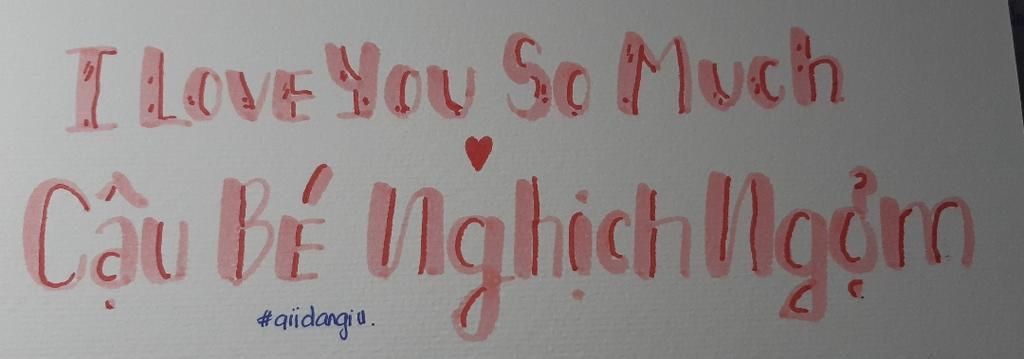 I Love You So Much
Cậu Bé Nghịch Ngợm
#qiidangiu.